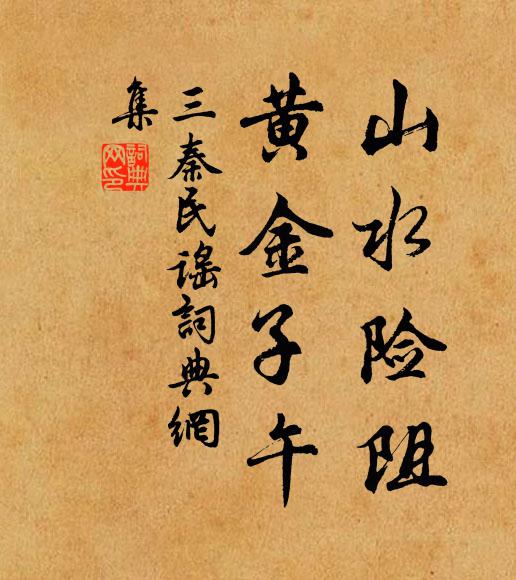 山水险阻
黄金子午
三秦民谣詞典網
集
詞典網印